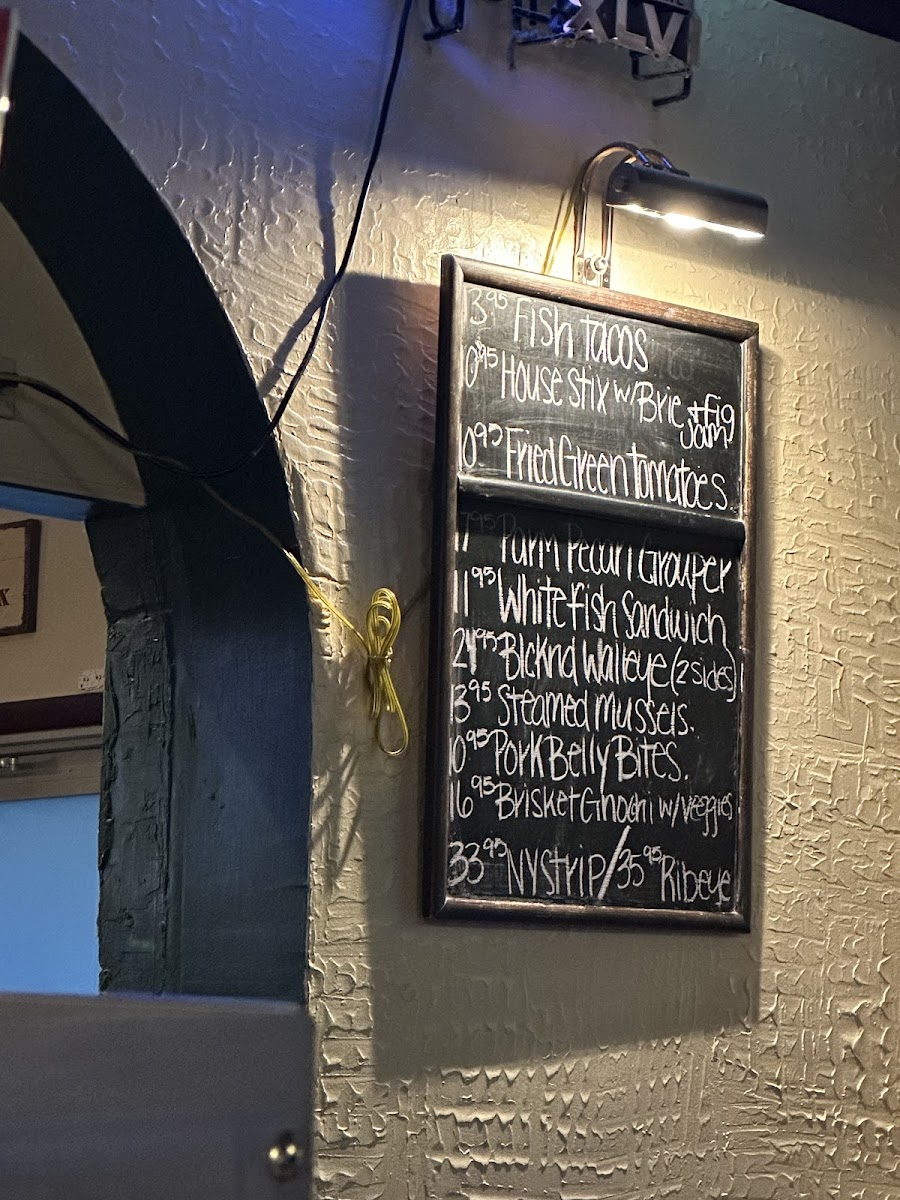 XLV
3.95 Fish tacos
10.95 House Stix w/Brie + Fig
Jam
10.95 Fried Green Tomatoes
17.95 Parm Pecan Grouper
11.95 Whitefish Sandwich
24.95 Blcknd Walleye (2 sides)
13.95 Steamed Mussels.
10.95 Pork Belly Bites.
16.95 Brisket Gnochi w/veggies
33.95 NY Strip/35.95 Ribeye